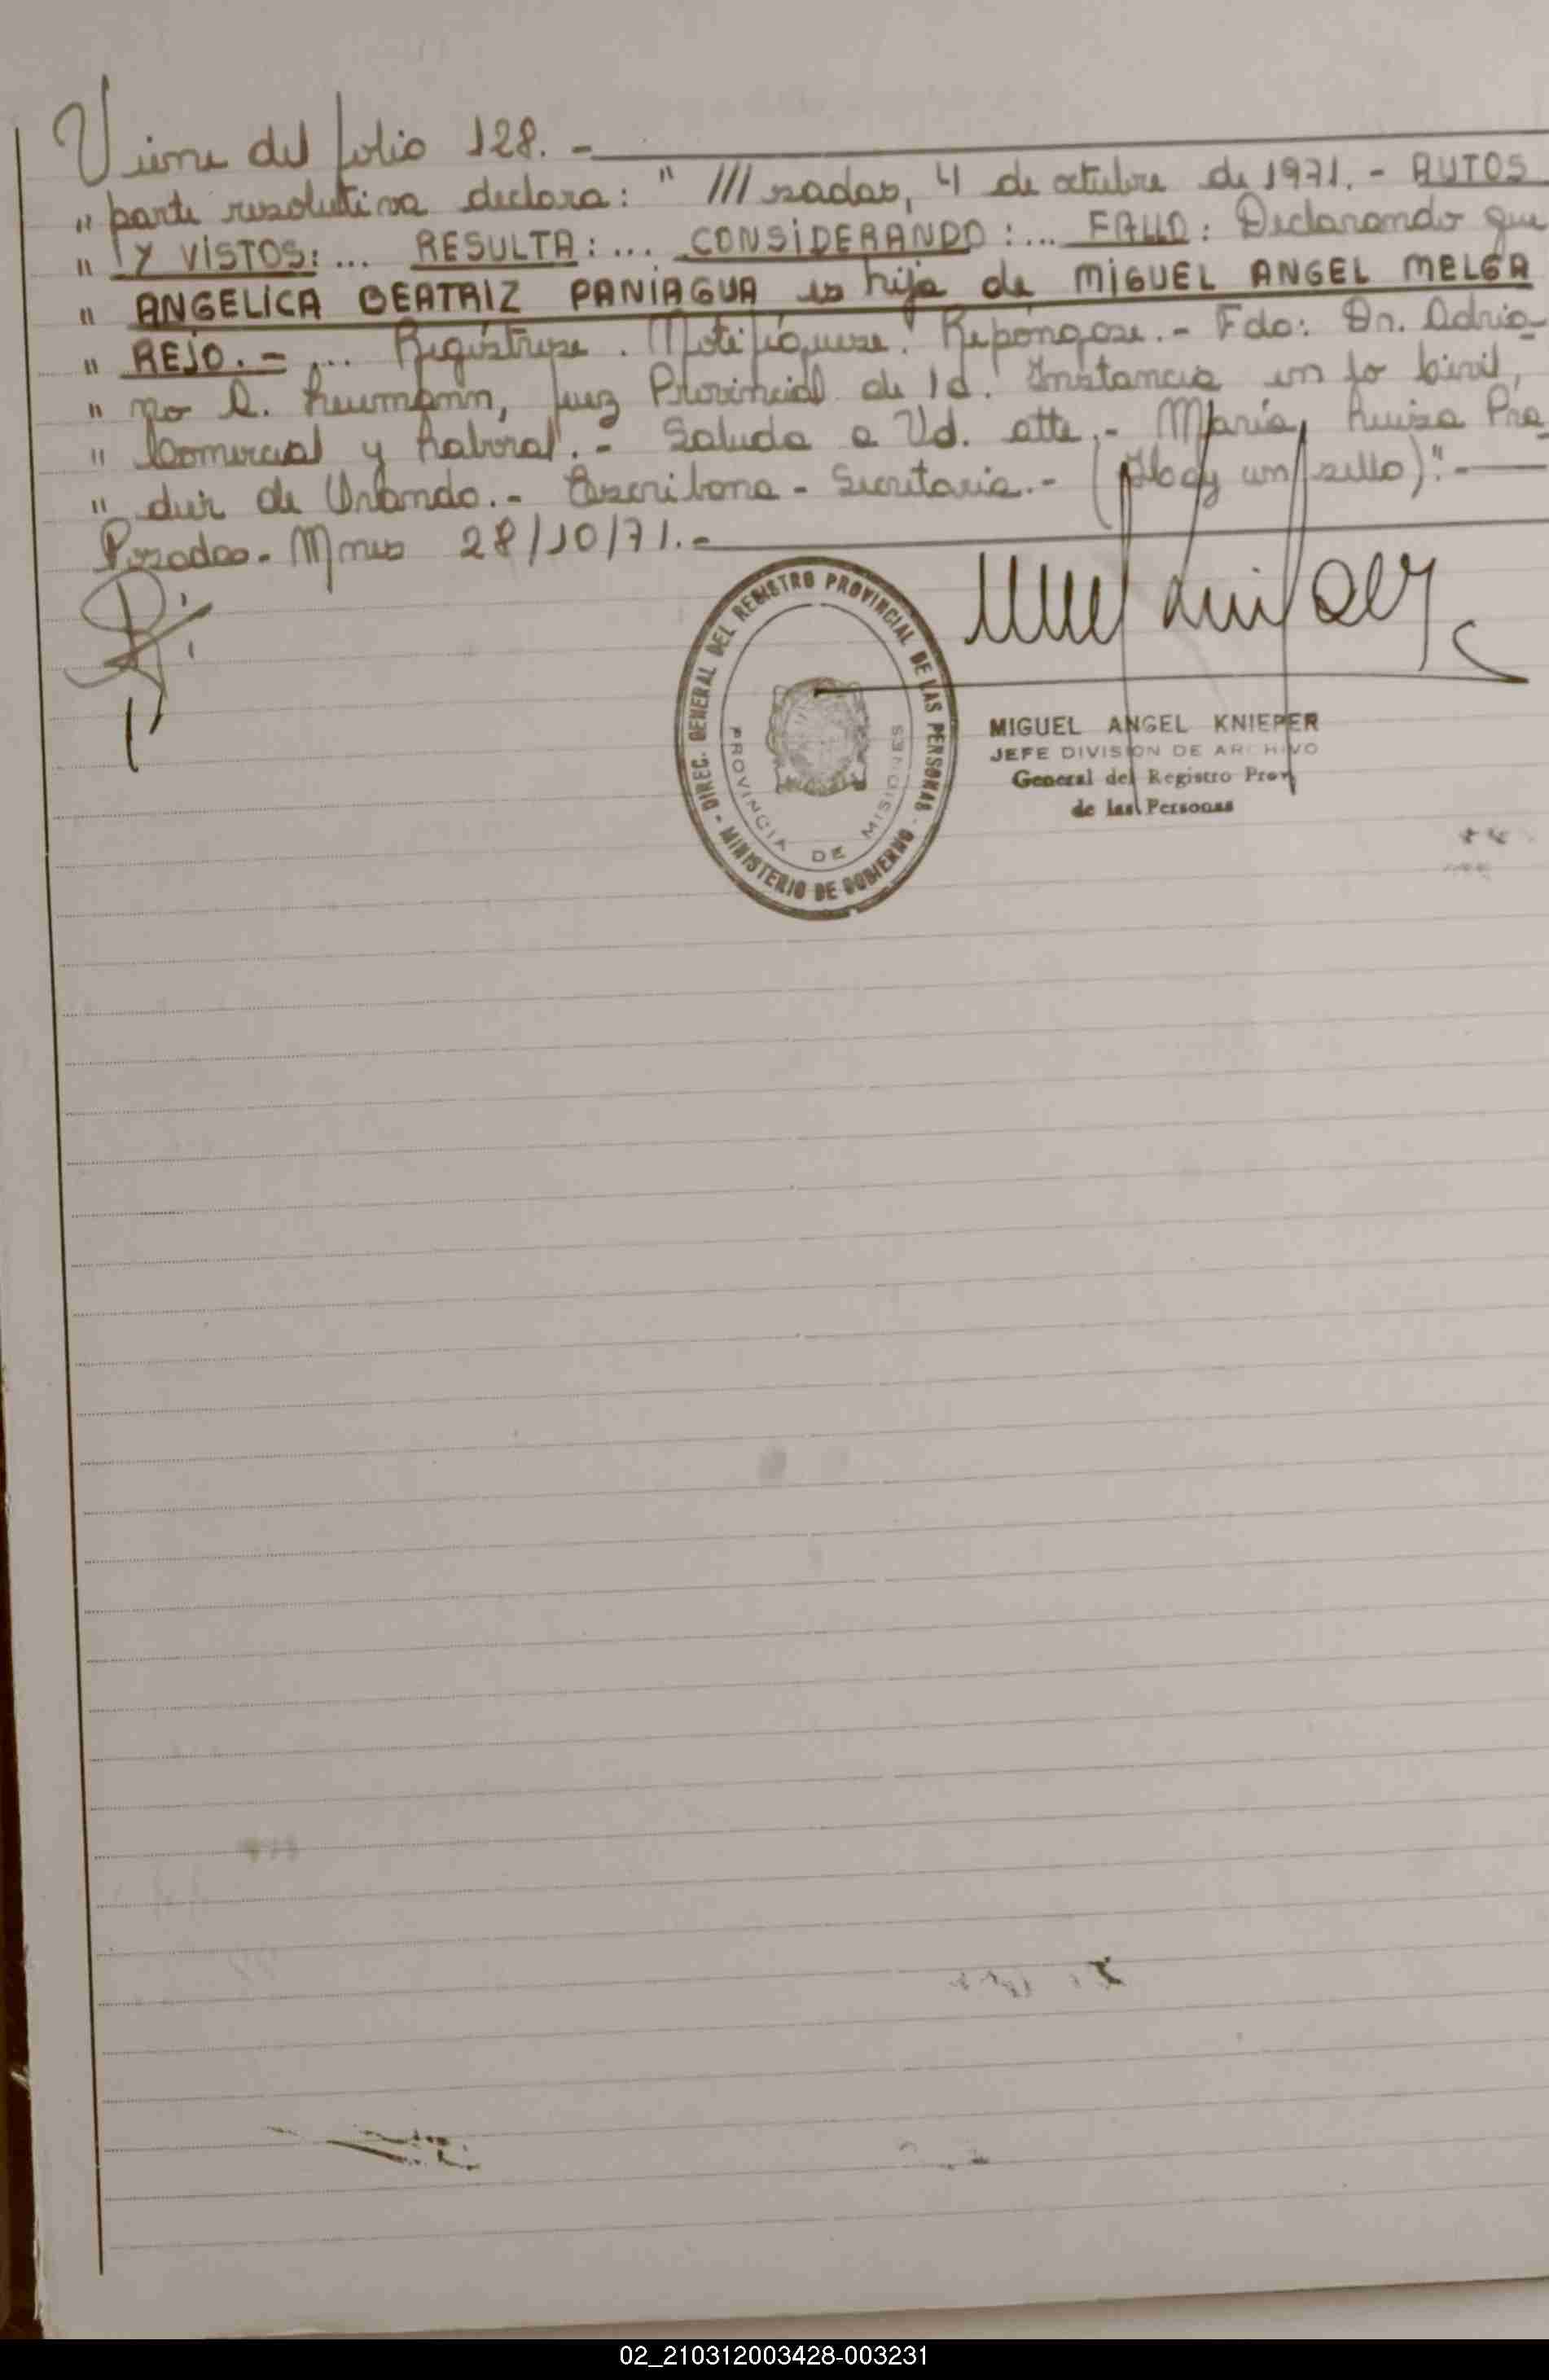 Viene del folio 128. -
" parte resolutiva declara: " ///sadas, 4 de octubre de 1971. - AUTOS
" Y VISTOS: ... RESULTA: ... CONSIDERANDO: ... FALLO: Declarando que
" ANGELICA BEATRIZ PANIAGUA es hija de MIGUEL ANGEL MELGA
" REJO. - ... Regístrese. Notifíquese. Repóngase. - Fdo: Dr. Adria-
" no L. Leumann, Juez Provincial de 1a. Instancia en lo Civil,
" Comercial y Laboral. - Saluda a Ud. atte. - María Luisa Pra
" dier de Orlando. - Escribana - Secretaria. - (Hay un sello)". -
Posadas - Mnes 28/10/71. -
DIREC. GENERAL DEL REGISTRO PROVINCIAL DE LAS PERSONAS - MINISTERIO DE GOBIERNO -
PROVINCIA DE MISIONES
MIGUEL ANGEL KNIEPER
JEFE DIVISION DE ARCHIVO
General del Registro Prov
de las Personas
02_210312003428-003231